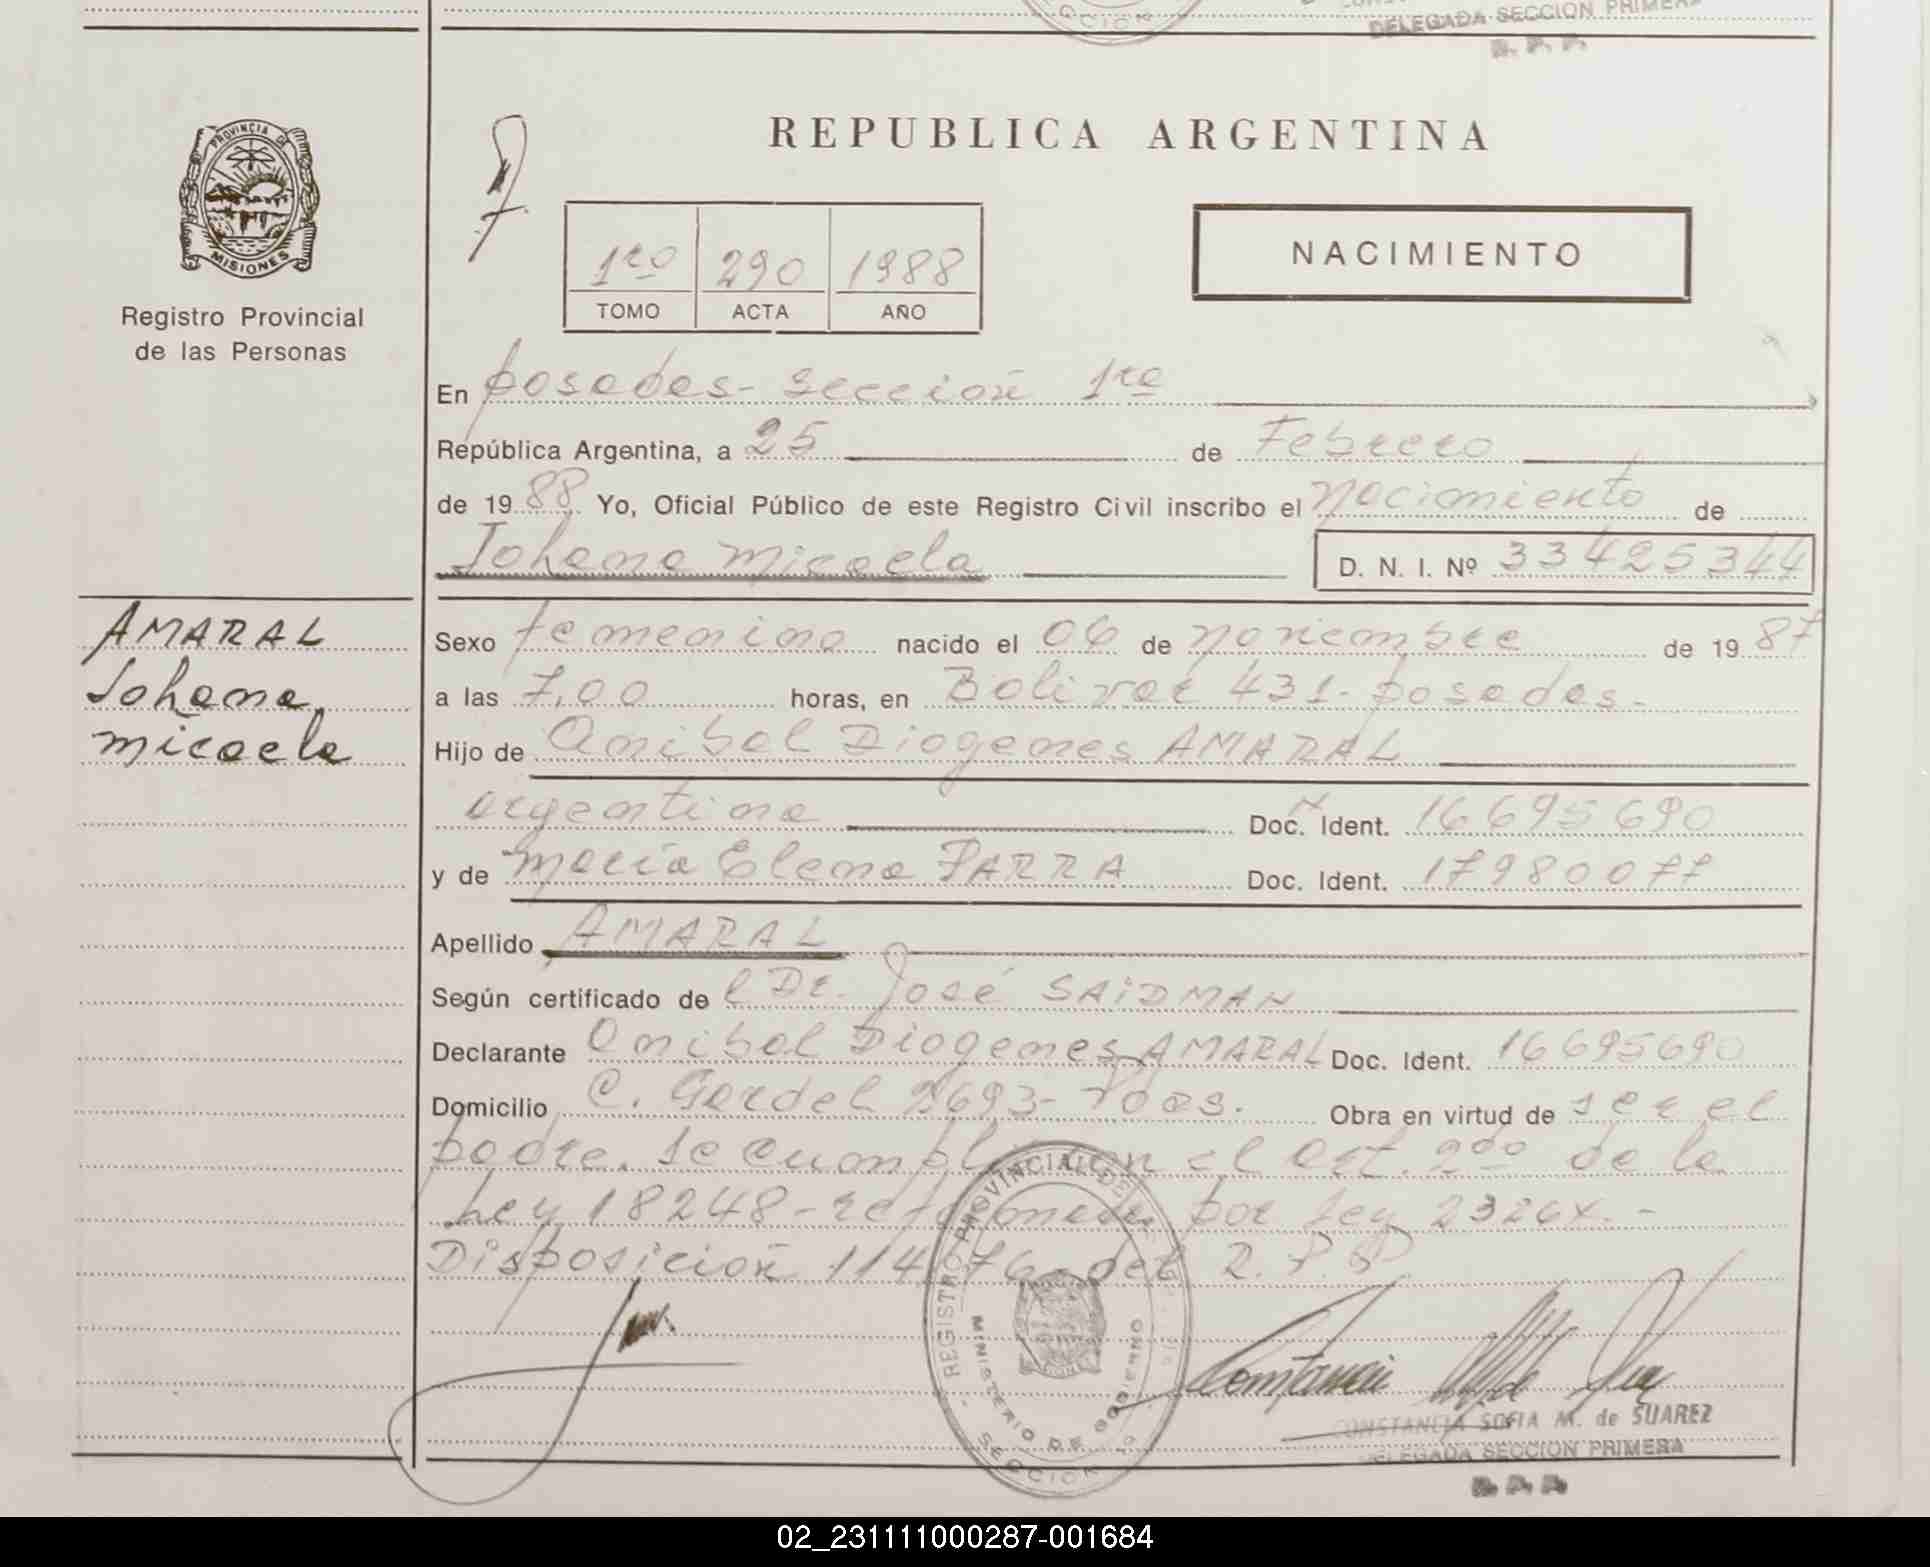 DELEGADA SECCION PRIMERA
R. P. P.
PROVINCIA DE
MISIONES
Registro Provincial
de las Personas
REPUBLICA ARGENTINA
1ro 290 1988
TOMO ACTA AÑO
NACIMIENTO
En posadas - sección 1ra
República Argentina, a 25 de Febrero
de 1988 Yo, Oficial Público de este Registro Civil inscribo el nacimiento de
Johana micaela D. N. I. Nº 33425344
AMARAL
Johana
micaela
Sexo femenino nacido el 06 de noviembre de 1987
a las 7,00 horas, en Bolivar 431 - posadas -
Hijo de Anibal Diogenes AMARAL
argentina Doc. Ident. 16695690
y de maría Elena PARRA Doc. Ident. 17980077
Apellido AMARAL
Según certificado del Dr. José SAIDMAN
Declarante Anibal Diogenes AMARAL Doc. Ident. 16695690
Domicilio C. Gardel 2693 - Pdas. Obra en virtud de ser el
padre. Se cumple con el art. 2do de la
Ley 18248 - por Ley -
Disposición 114/76 - del R. P. P
REGISTRO PROVINCIAL DE
MINISTERIO DE GOBIERNO
SECCION
CONSTANCIA SOFIA M. de SUAREZ
DELEGADA SECCION PRIMERA
R. P. P.
02_231111000287-001684